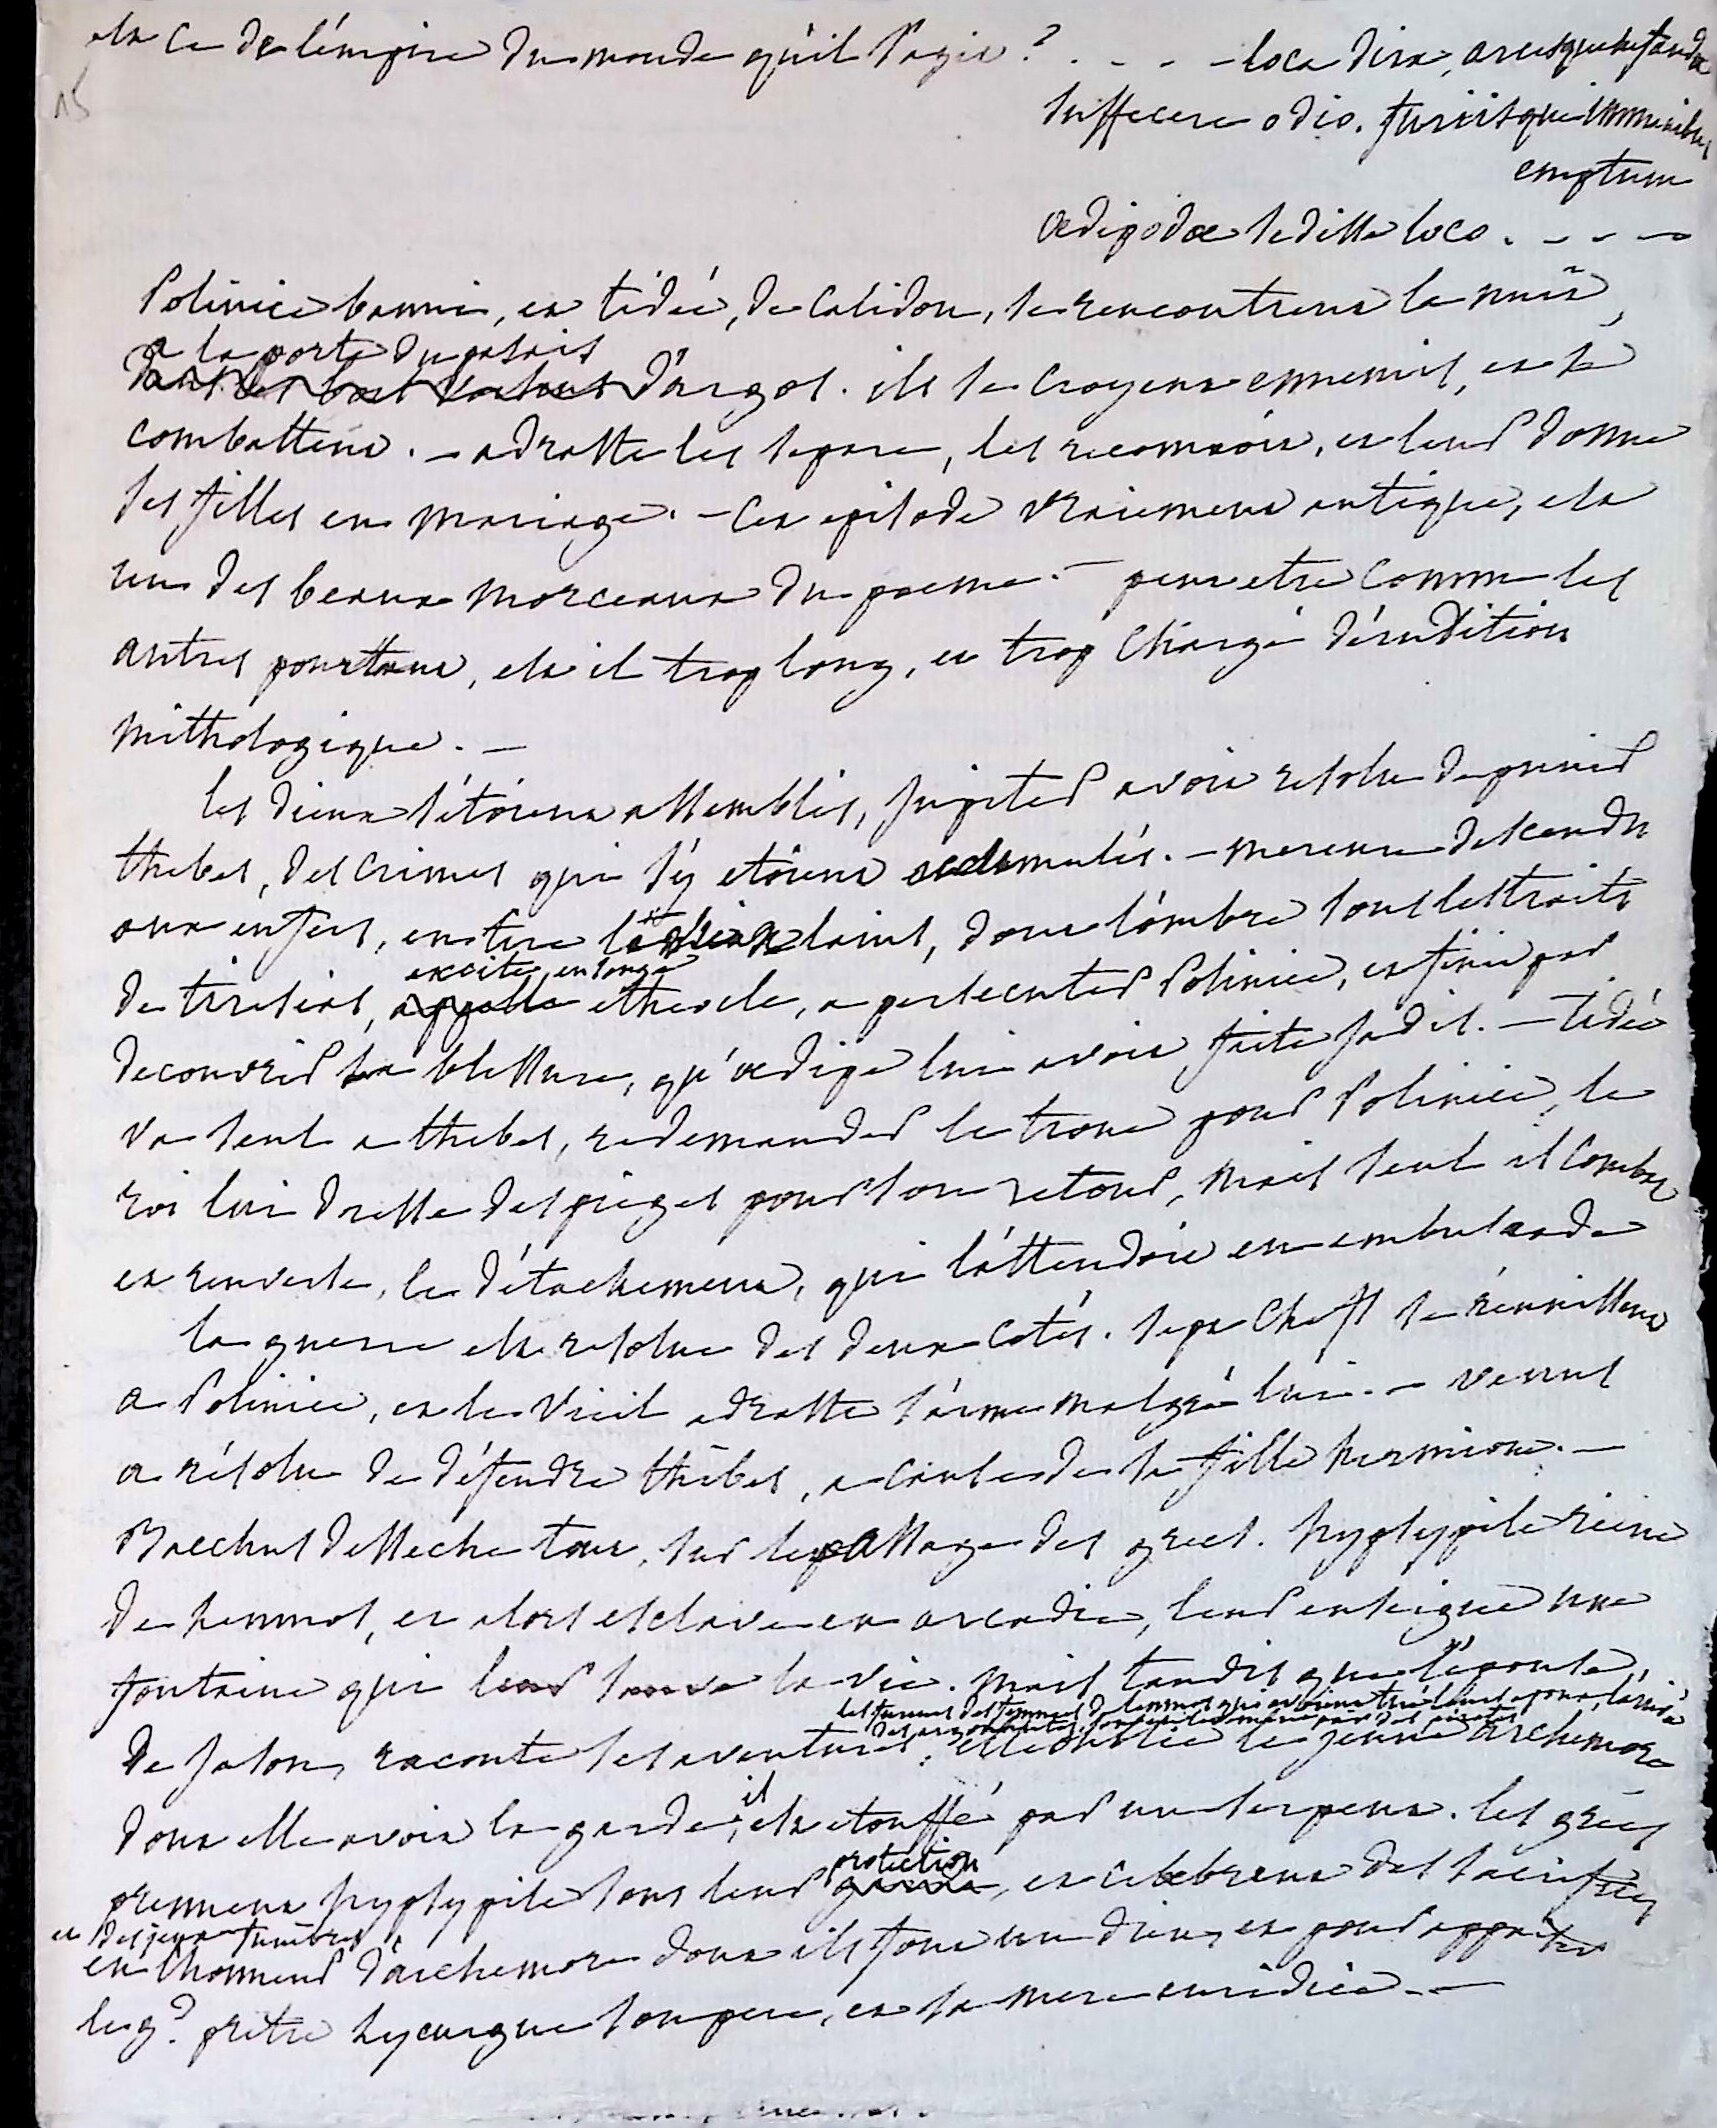 est ce de l'émpire du monde qu'il s'agit ? . - - - loca dira, arcesque nefandæ
15
suffecere odio. furiisque immanibus
emptum
œdipodæ sedisse loco . - - -
Polinice banni, et tidée, de Calidon, se rencontrent la nuit,
a la porte du palais
d'argos. ils se croyent ennemis, et se
combattent. - adraste les separe, les reconnoit, et leur donne
ses filles en mariage. - Cet episode vraiment antique, est
un des beaux morceaux du poeme. - peut etre comme les
autres pourtant, est il trop long, et trop chargé d'érudition
mithologique. -
les dieux s'étoient assemblés, jupiter avoit resolu de punir
thebes, des crimes qui s'y etoient accumulés. - mercure descendu
aux enfers, en tire laius, dont l'ombre sous les traits
excite, en songe
de tiresias, appelle etheocle, a persecuter Polinice, et finit par
decouvrir sa blessure, qu'œdipe lui avoit faite jadis. - tidée
va seul a thebes, redemander le trone pour Polinice, le
roi lui dresse des pieges pour son retour, mais seul il combat
et renverse, le détachement, qui l'attendoit en embuscade
la guerre est resolue des deux cotés. sept chefs se réunissent
a Polinice, et le vieil adraste s'arme malgré lui. - venus
a résolu de défendre thèbes, a cause de sa fille hermione. -
Bacchus desseche tout, sur le passage des grecs. hypsypile reine
de lemnos, et alors esclave en arcadie, leur enseigne une
fontaine qui leur sauve la vie. mais tandis que l'épouse
les fureurs des femmes de lemnos qui avoient tué leurs epoux, l'arrivée
des argonautes, son exil
de jason, raconte ses aventures, elle oublie le jeune archemore
dont elle avoit la garde, il est etouffé par un serpent. les grecs
protection
prennent hypsypile sous leur garde, et celebrent des sacrifices
et des jeux funèbres
en l'honneur d'archemore dont ils font un dieu, et pour appaiser
le gd. pretre Lycurgue son pere, et sa mere euridice. -